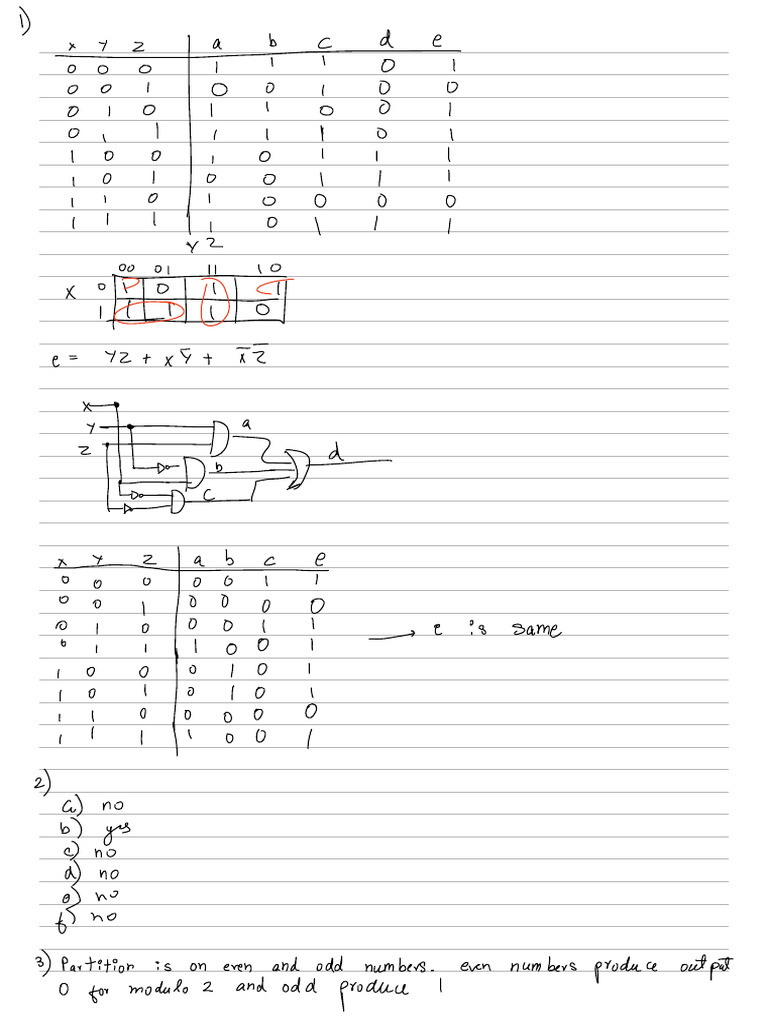 1)
x y z a b c d e
0 0 0 1 1 1 0 1
0 0 1 0 0 1 0 0
0 1 0 1 1 0 0 1
0 1 1 1 1 1 0 1
1 0 0 1 0 1 1 1
1 0 1 0 0 1 1 1
1 1 0 1 0 0 0 0
1 1 1 1 0 1 1 1
YZ
00 01 11 10
X 0 1 0 1 1
1 1 1 1 0
e = YZ + x ȳ + x̄ z̄
X
Y a
Z b d
c
x y z a b c e
0 0 0 0 0 1 1
0 0 1 0 0 0 0
0 1 0 0 0 1 1 → e is same
0 1 1 1 0 0 1
1 0 0 0 1 0 1
1 0 1 0 1 0 1
1 1 0 0 0 0 0
1 1 1 1 0 0 1
2)
a) no
b) yes
c) no
d) no
e) no
f) no
3) Partition is on even and odd numbers. even numbers produce output
0 for modulo 2 and odd produce 1